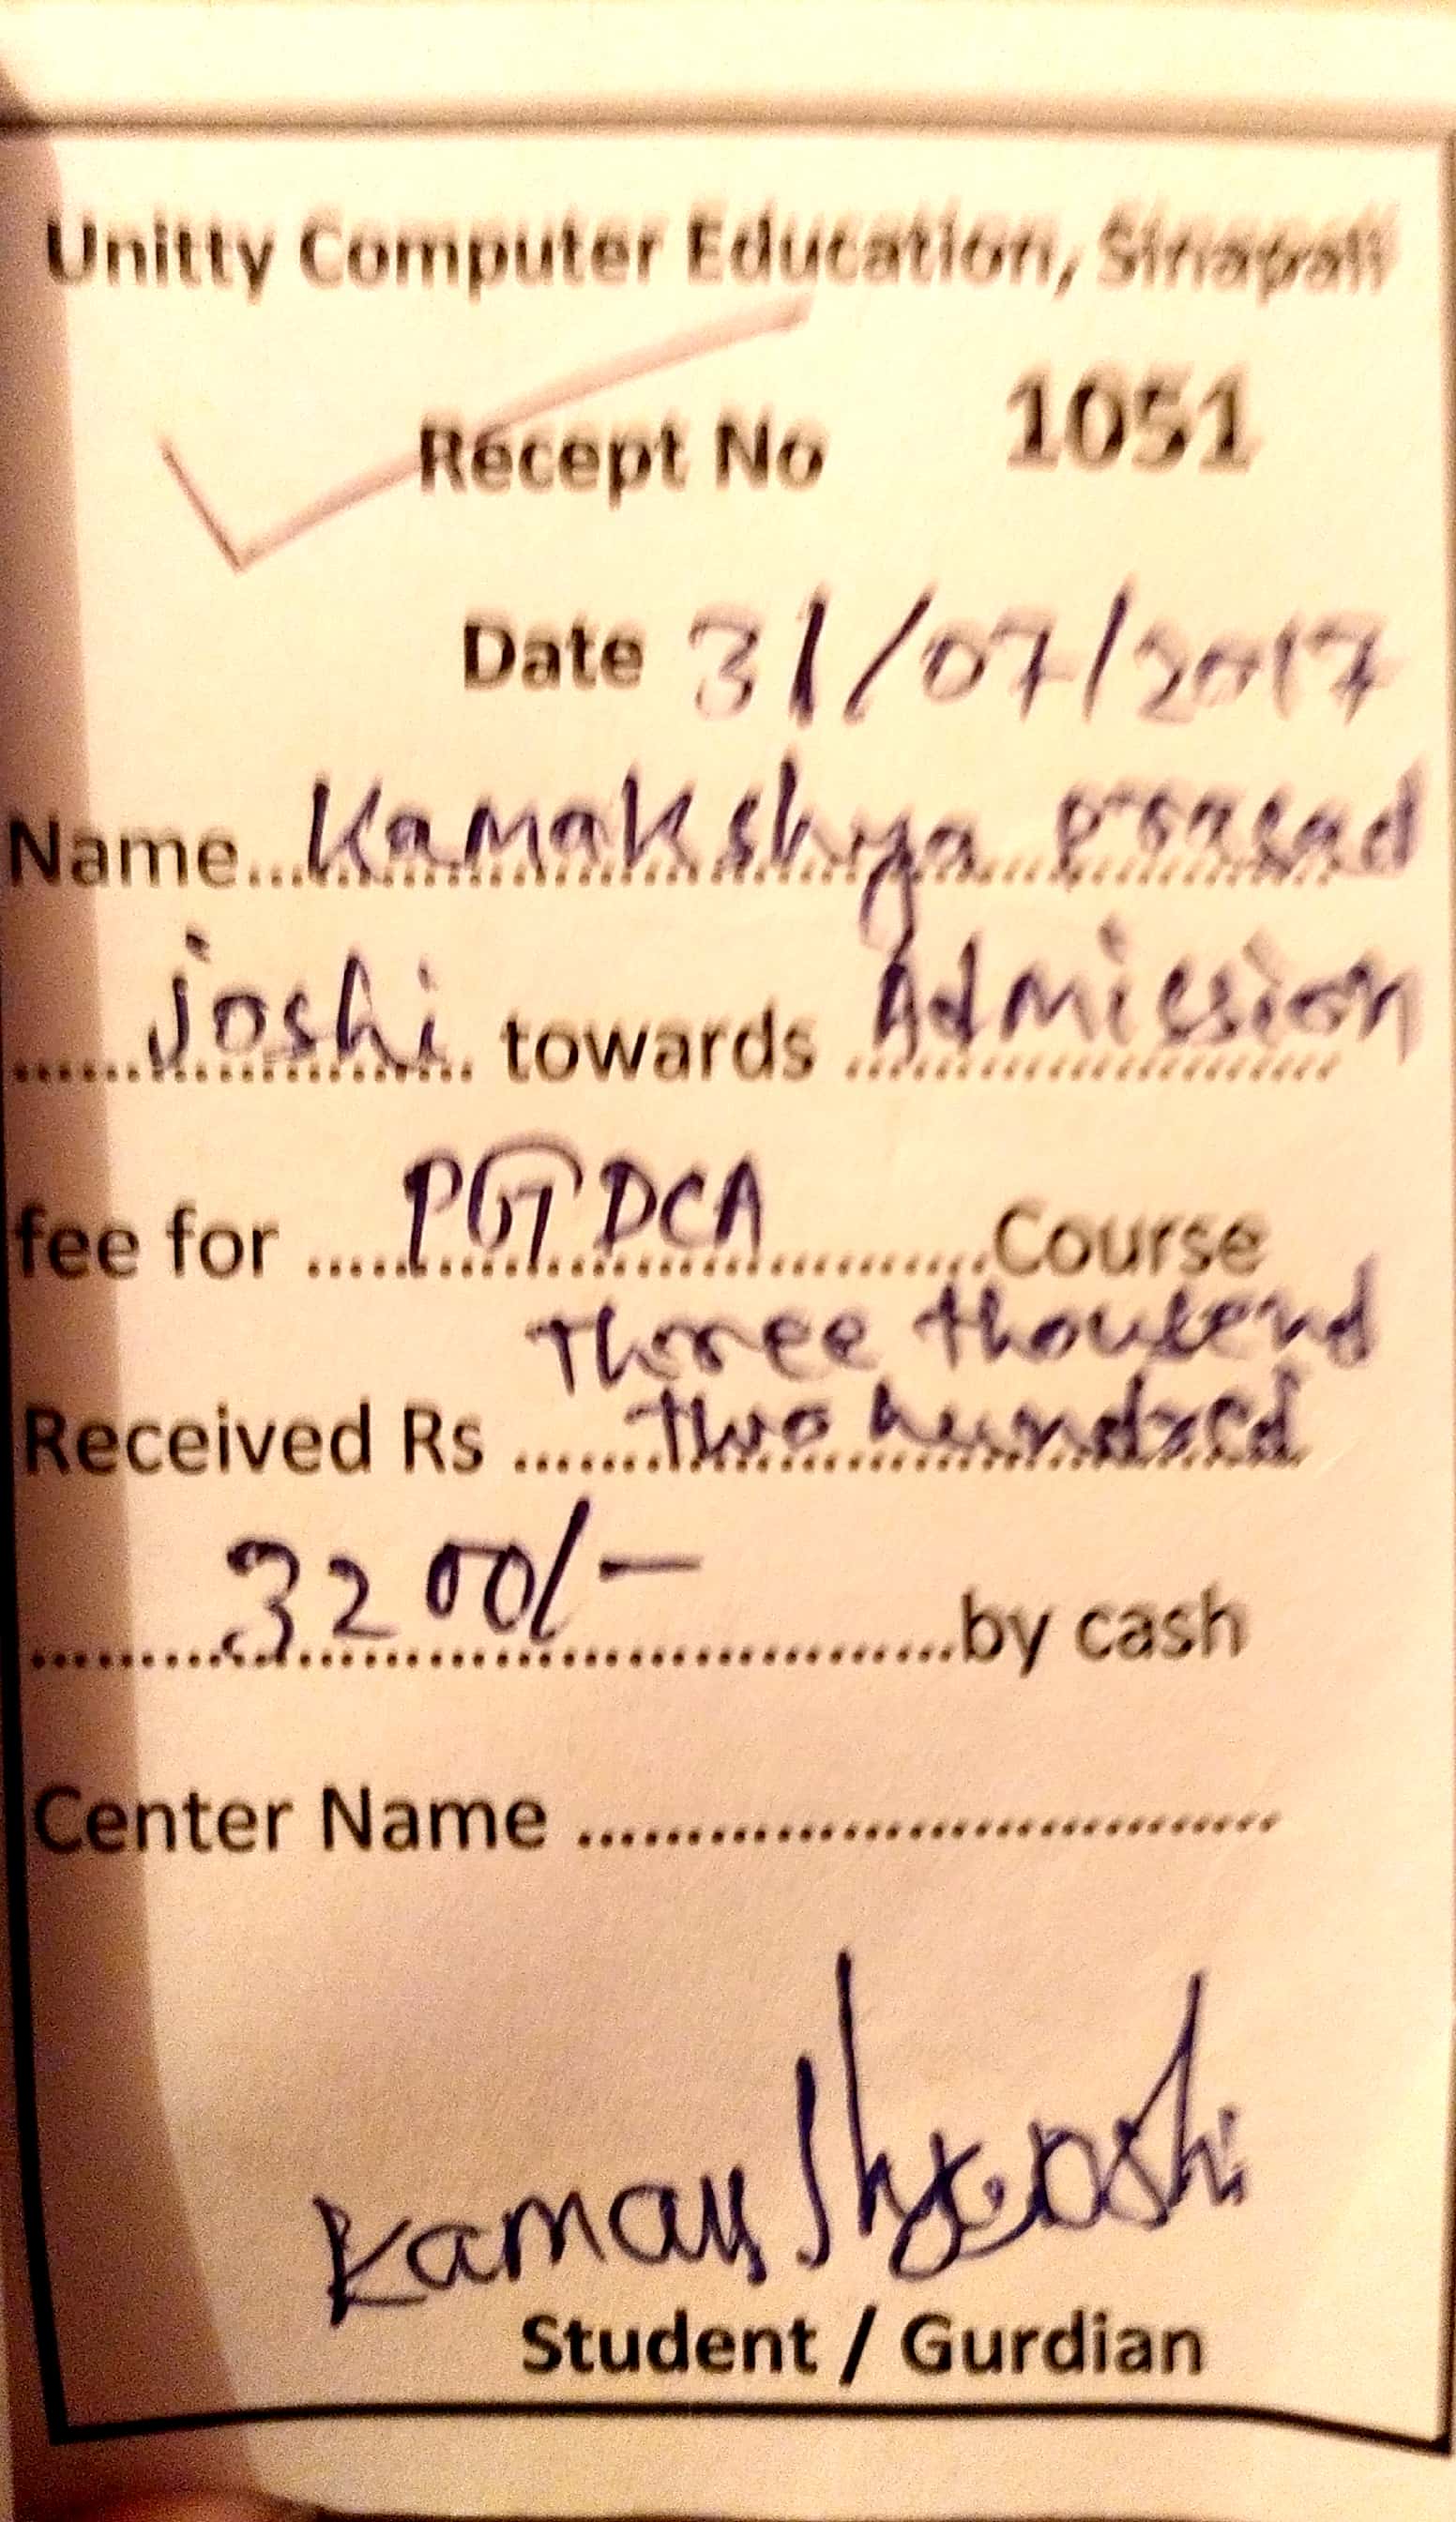 Unitty Computer Education, Sinapali
Recept No 1051
Date 31/07/2017
Name...Kamakshya Prasad
joshi towards Admission
fee for ..... PGDCA ..........Course
Three thousend
Received Rs ....... two hundred
3200/- ..........by cash
Center Name ................................
Kamakshya Joshi
Student / Gurdian